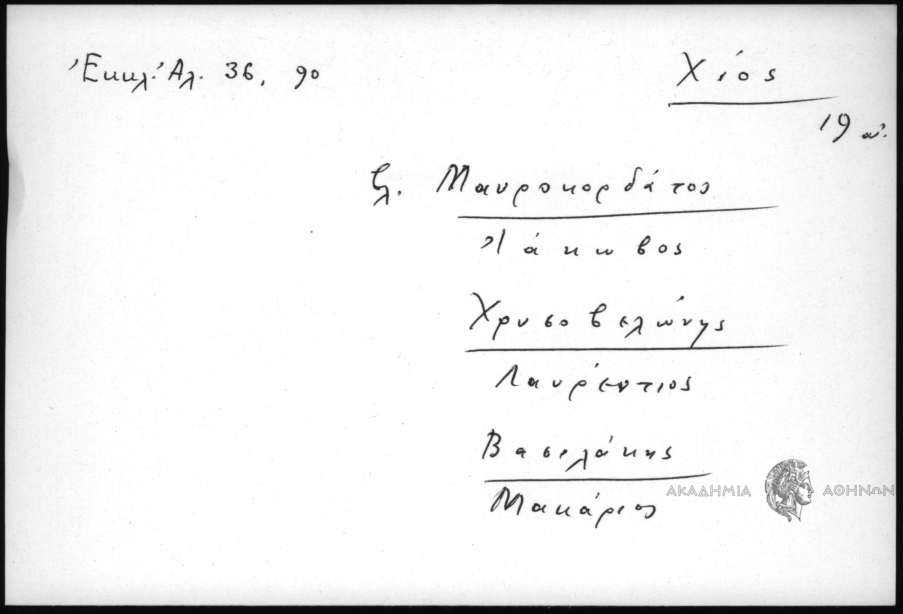 Ἐκκλ. Ἀλ. 36, 90
Χίος
19 αἰ.
βλ. Μαυροκορδάτος
Ἰάκωβος
Χρυσοβελώνης
Λαυρέντιος
Βασιλάκης
Μακάριος
ΑΚΑΔΗΜΙΑ ΑΘΗΝΩΝ